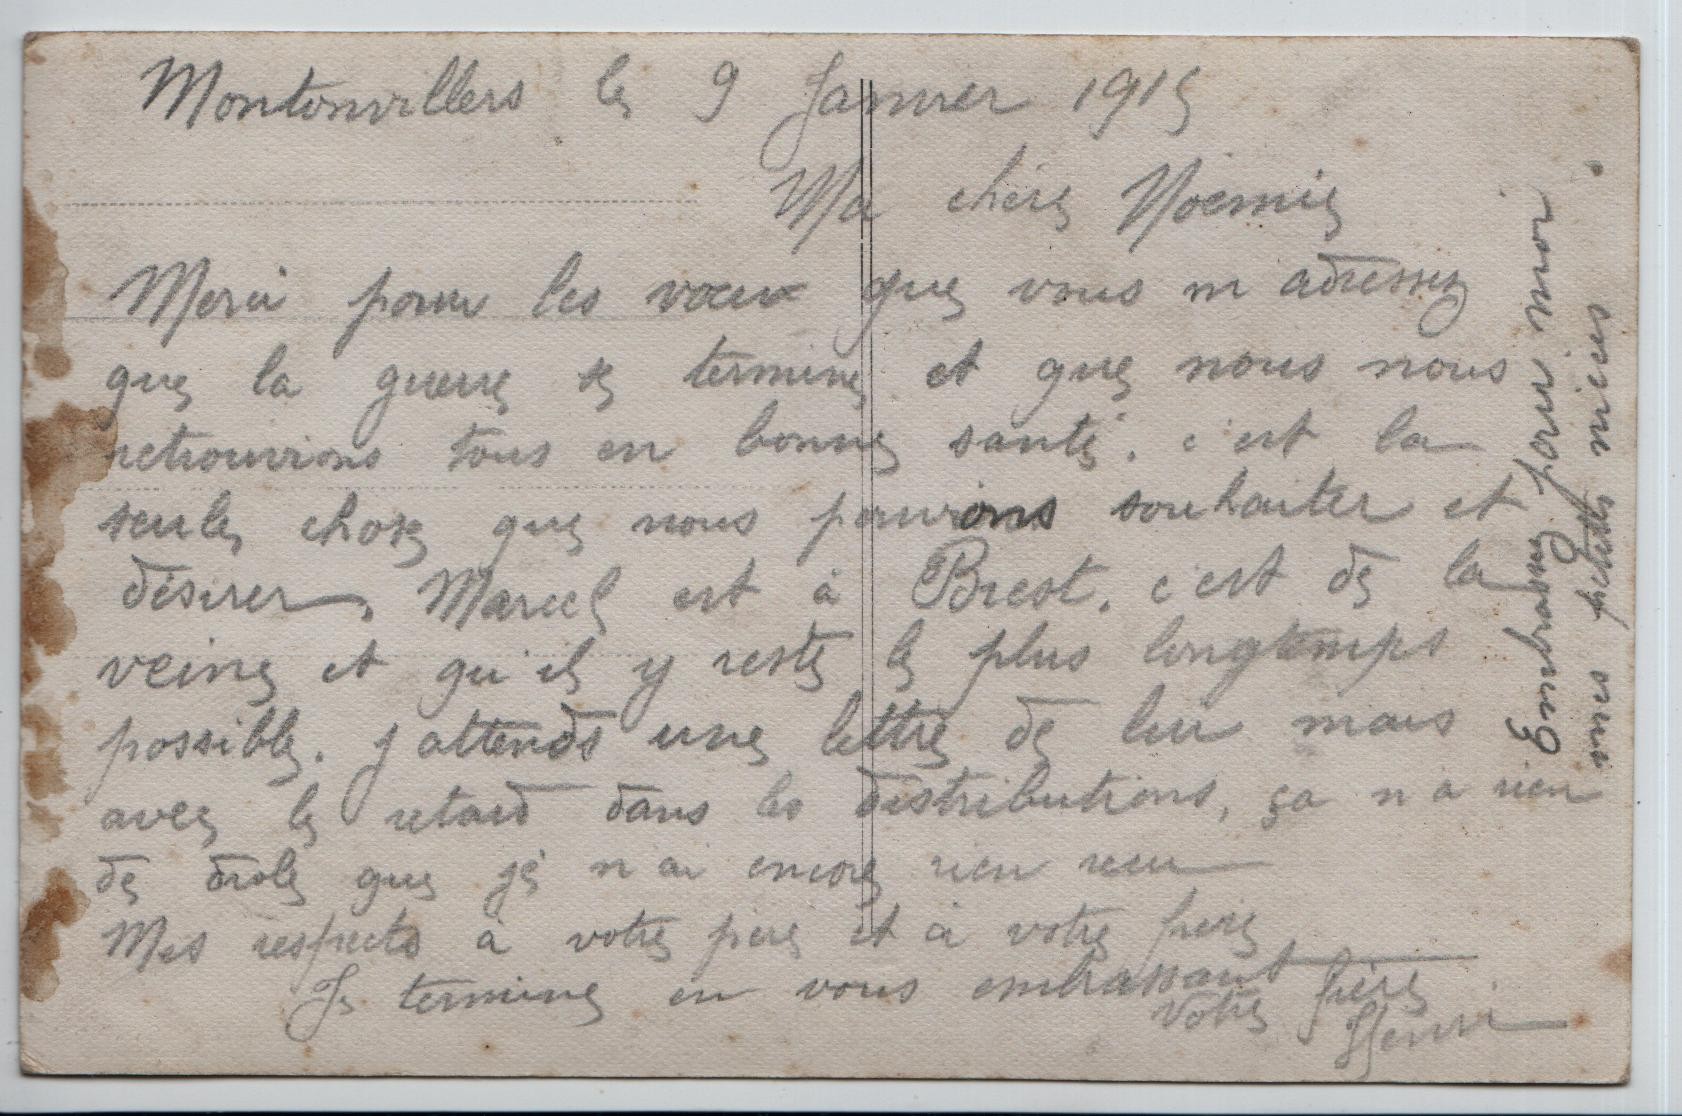 Montonvillers le 9 Janvier 1915
Ma chère Noemie
Merci pour les vœux que vous m adressez
que la guerre se termine et que nous nous
retrouvions tous en bonne santé. c'est la
seule chose que nous pouvions souhaiter et
désirer, Marcel est à Brest. c'est de la
veine et qu'il y reste le plus longtemps
possible. j attends une lettre de lui mais
avec le retard dans les distributions, ça n a rien
de drole que je n ai encore rien recu
Mes respects à votre père et à votre frère
Je termine en vous embrassant
Votre frère
Henri
Embrassez pour moi
mes petites nièces